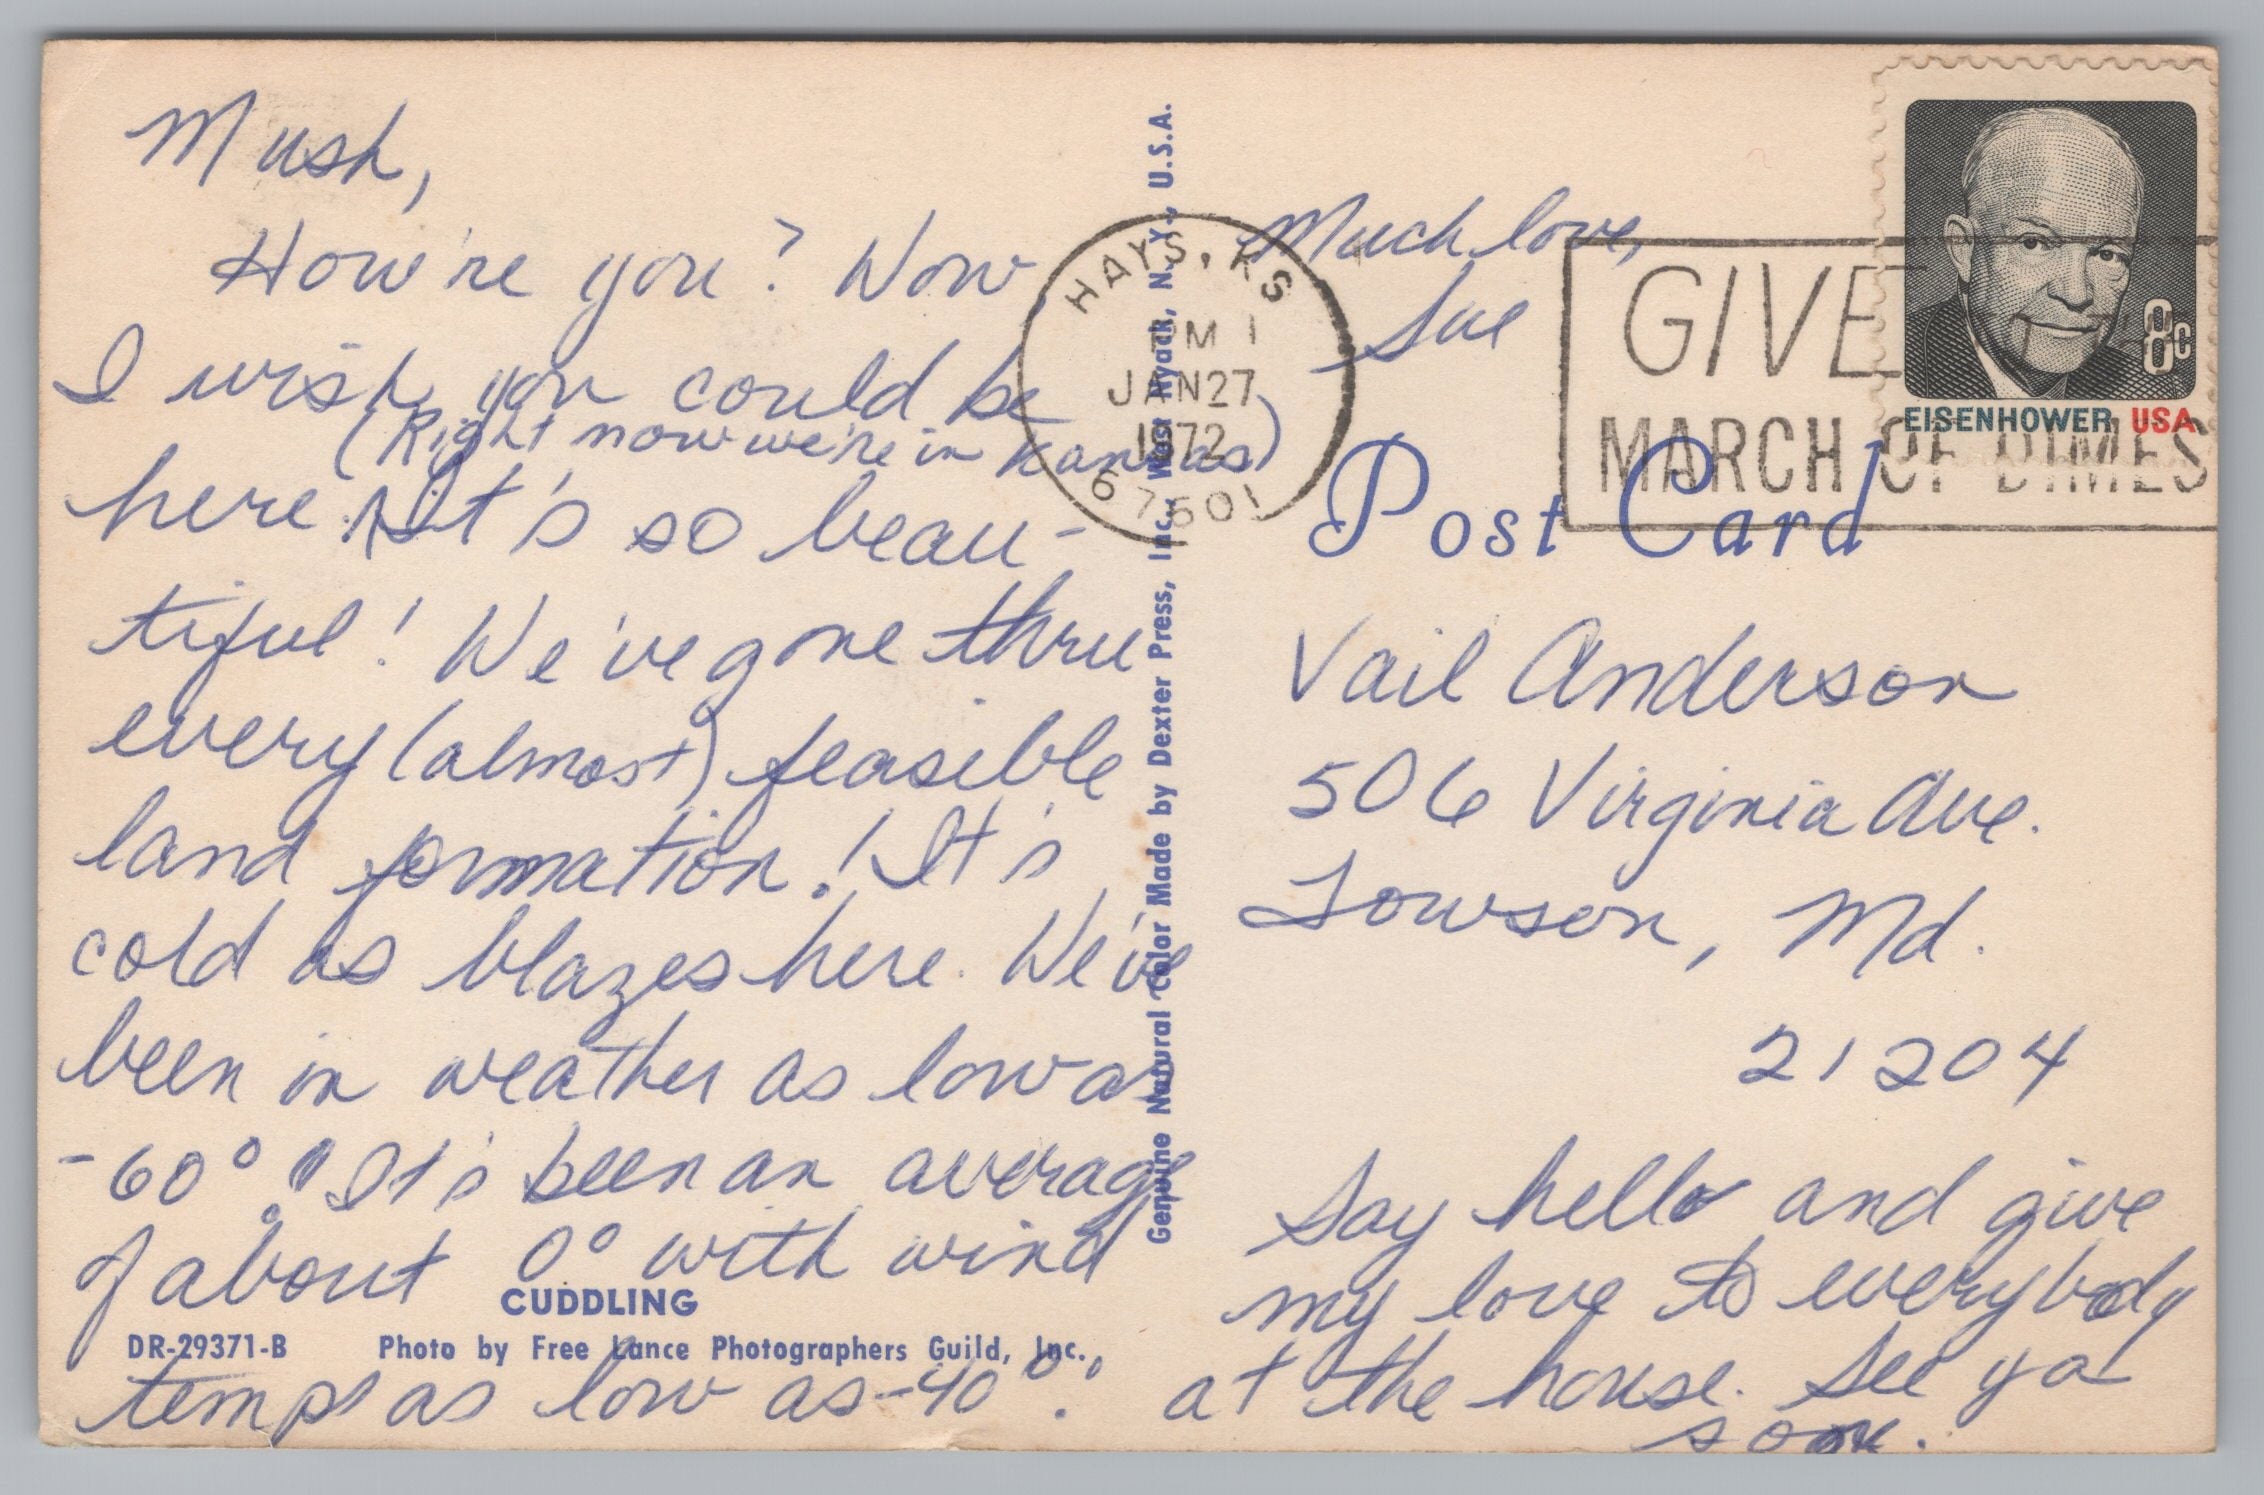 Mush,
How're you? Wow
I wish you could be
(Right now we're in Kansas)
here. It's so beau-
tiful! We've gone thru
every (almost) feasible
land formation! It's
cold as blazes here. We've
been in weather as low as
-60°! It's been an average
of about 0° with wind
CUDDLING
DR-29371-B Photo by Free Lance Photographers Guild, Inc.
temps as low as -40°!
Genuine Natural Color Made by Dexter Press, Inc., West Nyack, N. Y., U.S.A.
HAYS, KS
PM 1
JAN 27
1972
67601
Much love,
Sue
GIVE
MARCH OF DIMES
8c
EISENHOWER USA
Post Card
Vail Anderson
506 Virginia Ave.
Towson, Md.
21204
Say hello and give
my love to everybody
at the house. See ya
soon.